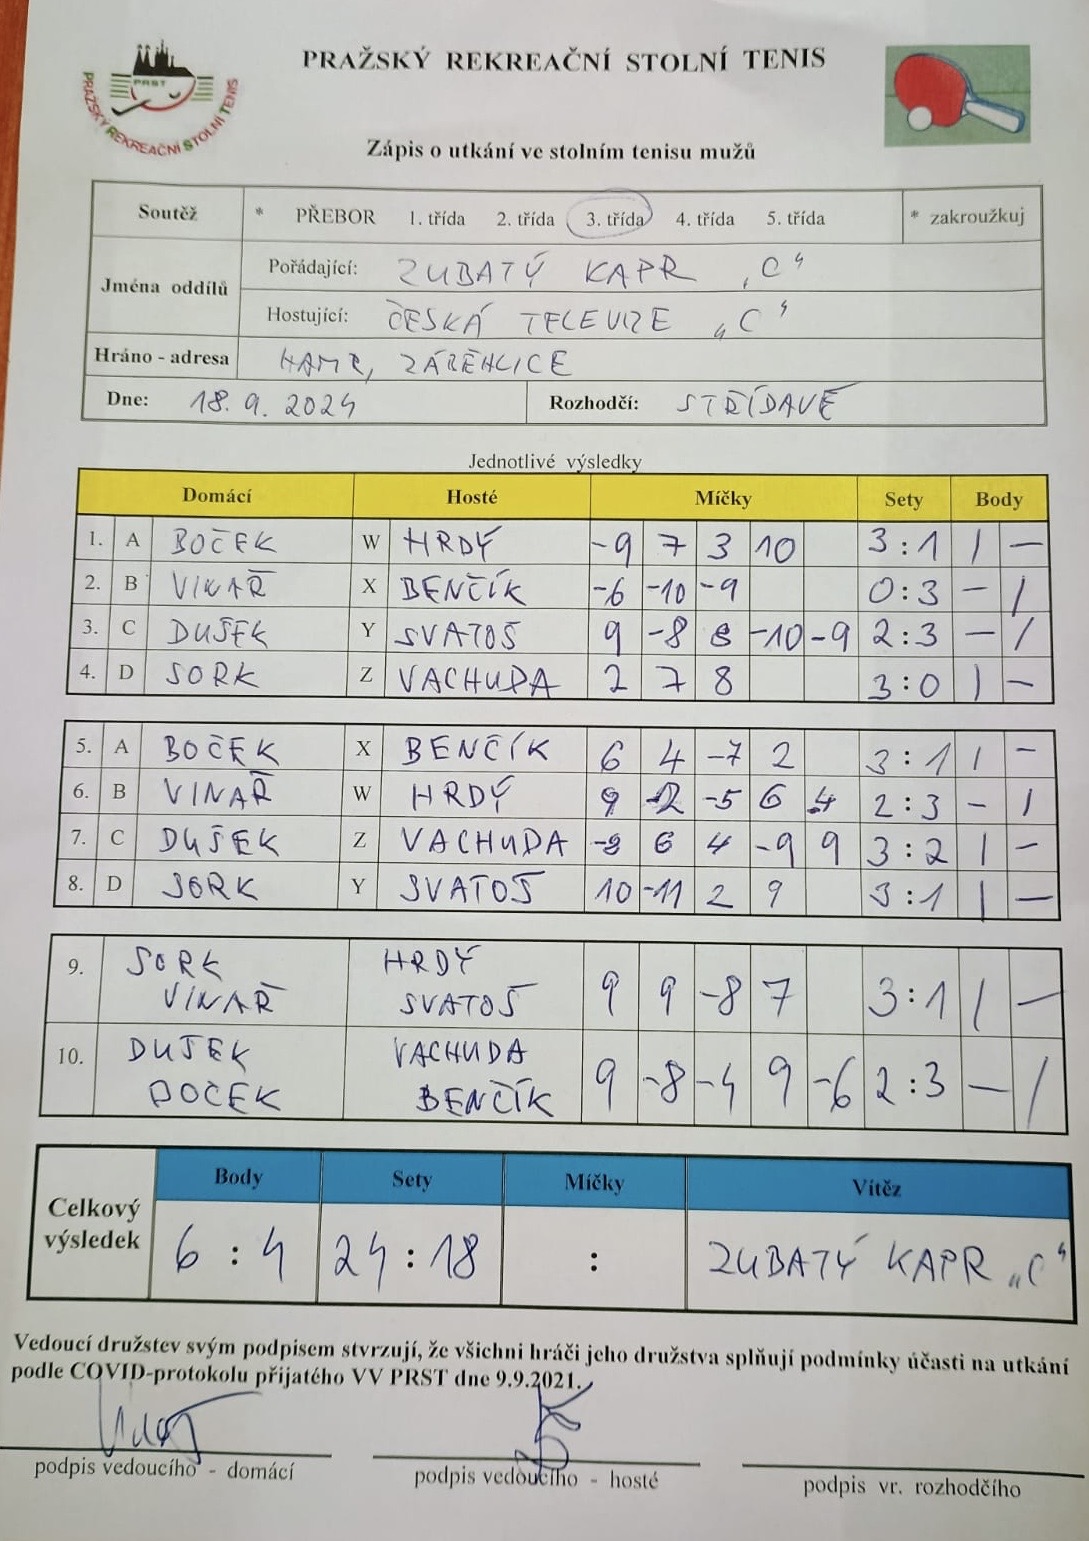 PRAŽSKÝ REKREAČNÍ STOLNÍ TENIS
PRST
PRAŽSKÝ REKREAČNÍ STOLNÍ TENIS
Zápis o utkání ve stolním tenisu mužů
Soutěž * PŘEBOR 1. třída 2. třída 3. třída 4. třída 5. třída * zakroužkuj
Jména oddílů
Pořádající: ZUBATÝ KAPR „C“
Hostující: ČESKÁ TELEVIZE „C“
Hráno - adresa HAMR, ZÁBĚHLICE
Dne: 18. 9. 2024 Rozhodčí: STŘÍDAVĚ
Jednotlivé výsledky
Domácí Hosté Míčky Sety Body
1. A BOČEK W HRDÝ -9 7 3 10 3:1 1 -
2. B VINAŘ X BENČÍK -6 -10 -9 0:3 - 1
3. C DUŠEK Y SVATOŠ 9 -8 8 -10 -9 2:3 - 1
4. D SORK Z VACHUDA 2 7 8 3:0 1 -
5. A BOČEK X BENČÍK 6 4 -7 2 3:1 1 -
6. B VINAŘ W HRDÝ 9 -5 6 2:3 - 1
7. C DUŠEK Z VACHUDA 6 4 -9 9 3:2 1 -
8. D SORK Y SVATOŠ 10 -11 2 9 3:1 1 -
9. SORK HRDÝ
VINAŘ SVATOŠ 9 9 -8 7 3:1 1 -
10. DUŠEK VACHUDA
BOČEK BENČÍK 9 -8 -4 9 -6 2:3 - 1
Celkový výsledek
Body Sety Míčky Vítěz
6 : 4 24 : 18 : ZUBATÝ KAPR „C“
Vedoucí družstev svým podpisem stvrzují, že všichni hráči jeho družstva splňují podmínky účasti na utkání
podle COVID-protokolu přijatého VV PRST dne 9.9.2021.
podpis vedoucího - domácí podpis vedoucího - hosté podpis vr. rozhodčího